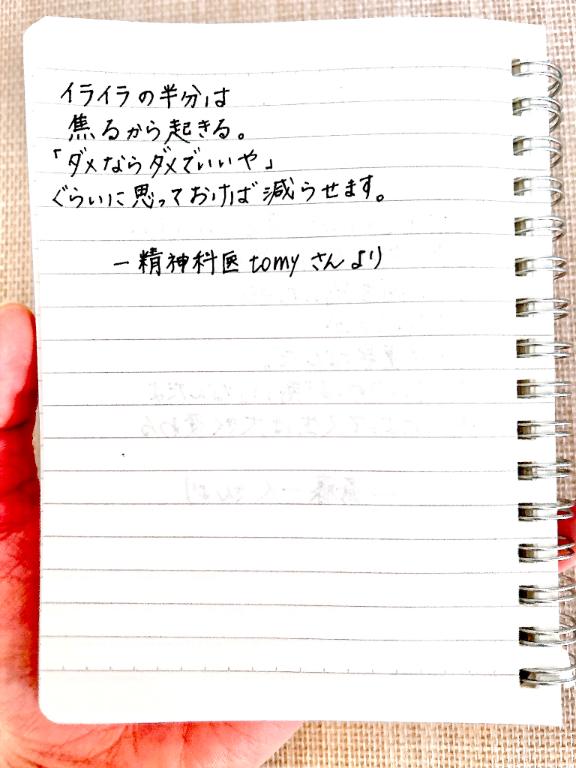 イライラの半分は
焦るから起きる。
「ダメならダメでいいや」
ぐらいに思っておけば減らせます。
ー精神科医tomyさんより